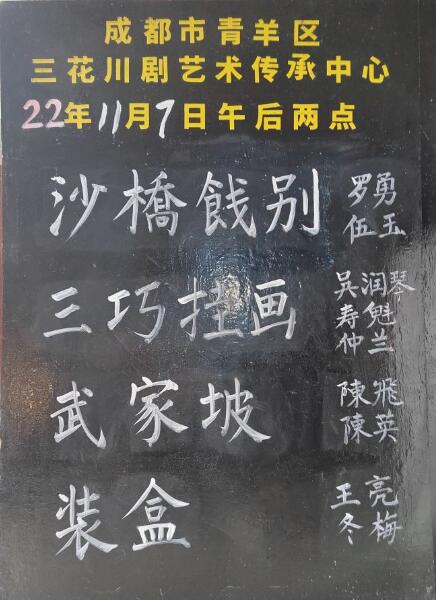 成都市青羊区
三花川剧艺术传承中心
22年11月7日午后两点
沙橋餞别 罗勇
伍玉
三巧挂画 吴润琴
寿魁
仲兰
武家坡 陳飛
陳英
装盒 王亮
冬梅